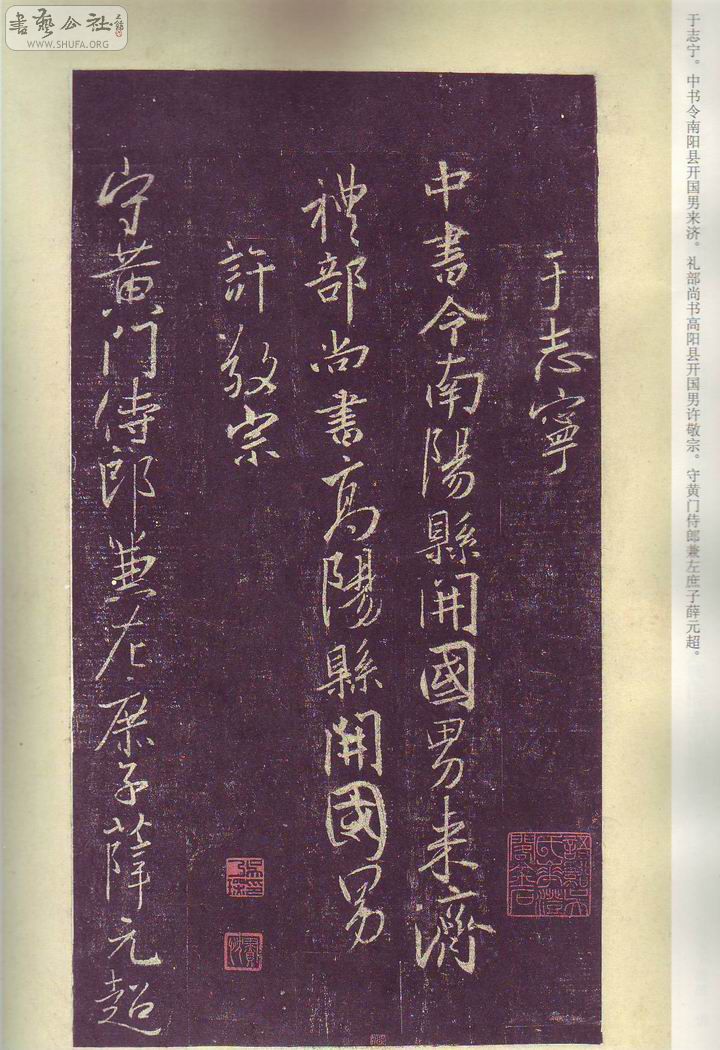 書藝公社
WWW.SHUFA.ORG
于志宁。中书令南阳县开国男来济。礼部尚书高阳县开国男许敬宗。守黄门侍郎兼左庶子薛元超。
于志寧
中書令南陽縣開國男来濟
禮部尚書高陽縣開國男
許敬宗
守黄门侍郎兼左庶子薛元超